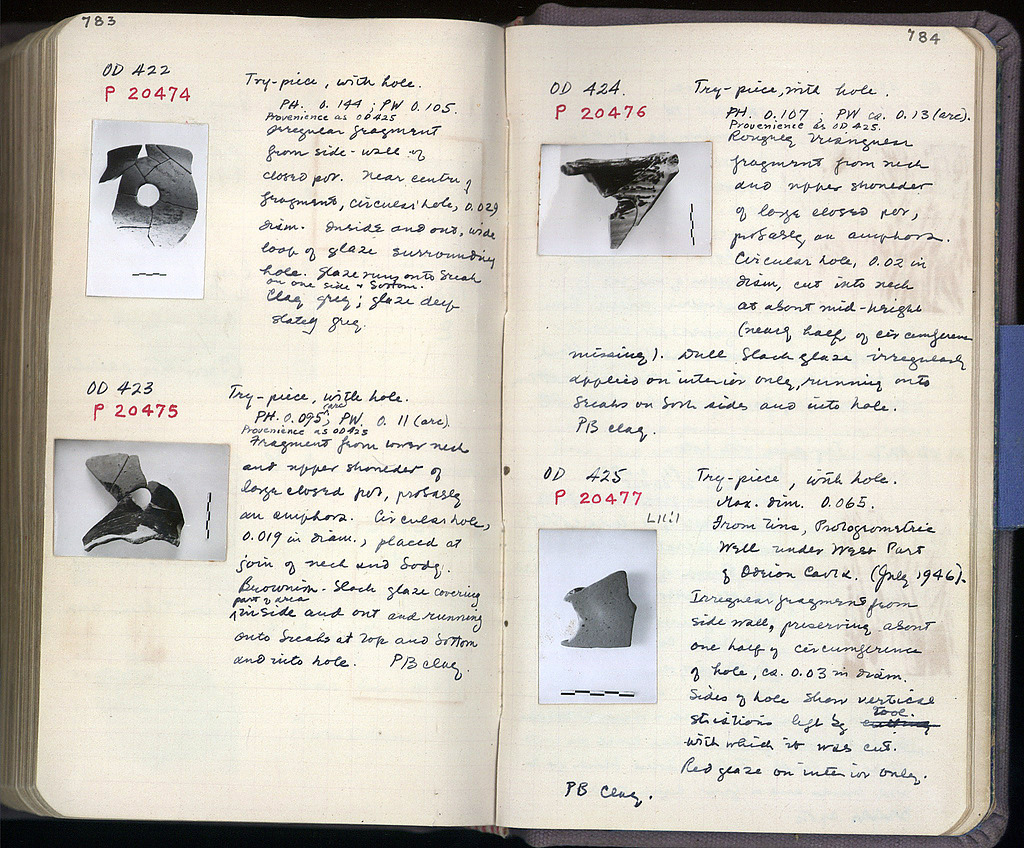 783
OD 422
P 20474
Try-piece, with hole.
PH. 0.144 ; PW 0.105.
Provenience as OD 425
Irregular fragment
from side-wall of
closed pot. Near center of
fragment, circular hole, 0.029
diam. Inside and out, wide
loop of glaze surrounding
hole. Glaze runs onto break
on one side & bottom.
Clay grey; glaze deep
slatey grey.
OD 423
P 20475
Try-piece, with hole.
PH. 0.095 (arc); PW. 0.11 (arc).
Provenience as OD 425
Fragment from lower neck
and upper shoulder of
large closed pot, probably
an amphora. Circular hole,
0.019 in diam., placed at
join of neck and body.
Brownish-black glaze covering
part of area
inside and out and running
onto breaks at top and bottom
and into hole. PB clay.
784
OD 424.
P 20476
Try-piece, with hole.
PH. 0.107 ; PW ca. 0.13 (arc).
Provenience as OD 425.
Roughly triangular
fragment from neck
and upper shoulder
of large closed pot,
probably an amphora.
Circular hole, 0.02 in
diam, cut into neck
at about mid-height
(nearly half of circumference
missing). Dull black glaze irregularly
applied on interior only, running onto
breaks on both sides and into hole.
PB clay.
OD 425
P 20477
Try-piece, with hole.
Max. dim. 0.065.
From
Protogeometric
Well under West Part
of Odeion Cavea. (July 1946).
Irregular fragment from
side wall, preserving about
one half of circumference
of hole, ca. 0.03 in diam.
Sides of hole show vertical
striations left by cutting tool.
with which it was cut.
Red glaze on interior only.
PB clay.